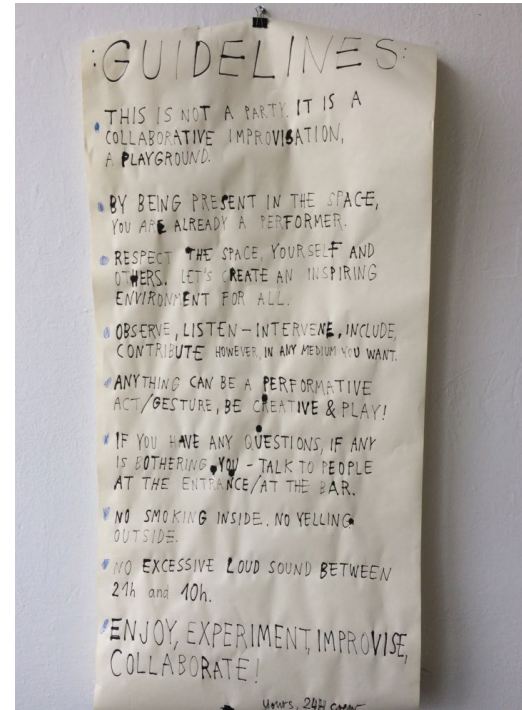 :GUIDELINES:
THIS IS NOT A PARTY. IT IS A
COLLABORATIVE IMPROVISATION,
A PLAYGROUND.
BY BEING PRESENT IN THE SPACE,
YOU ARE ALREADY A PERFORMER.
RESPECT THE SPACE, YOURSELF AND
OTHERS. LET'S CREATE AN INSPIRING
ENVIRONMENT FOR ALL.
OBSERVE, LISTEN – INTERVENE, INCLUDE,
CONTRIBUTE HOWEVER, IN ANY MEDIUM YOU WANT.
ANYTHING CAN BE A PERFORMATIVE
ACT/GESTURE, BE CREATIVE & PLAY!
IF YOU HAVE ANY QUESTIONS, IF ANY
IS BOTHERING YOU - TALK TO PEOPLE
AT THE ENTRANCE/AT THE BAR.
NO SMOKING INSIDE. NO YELLING
OUTSIDE.
NO EXCESSIVE LOUD SOUND BETWEEN
21h and 10h.
ENJOY, EXPERIMENT, IMPROVISE,
COLLABORATE!
Yours, 24H crew